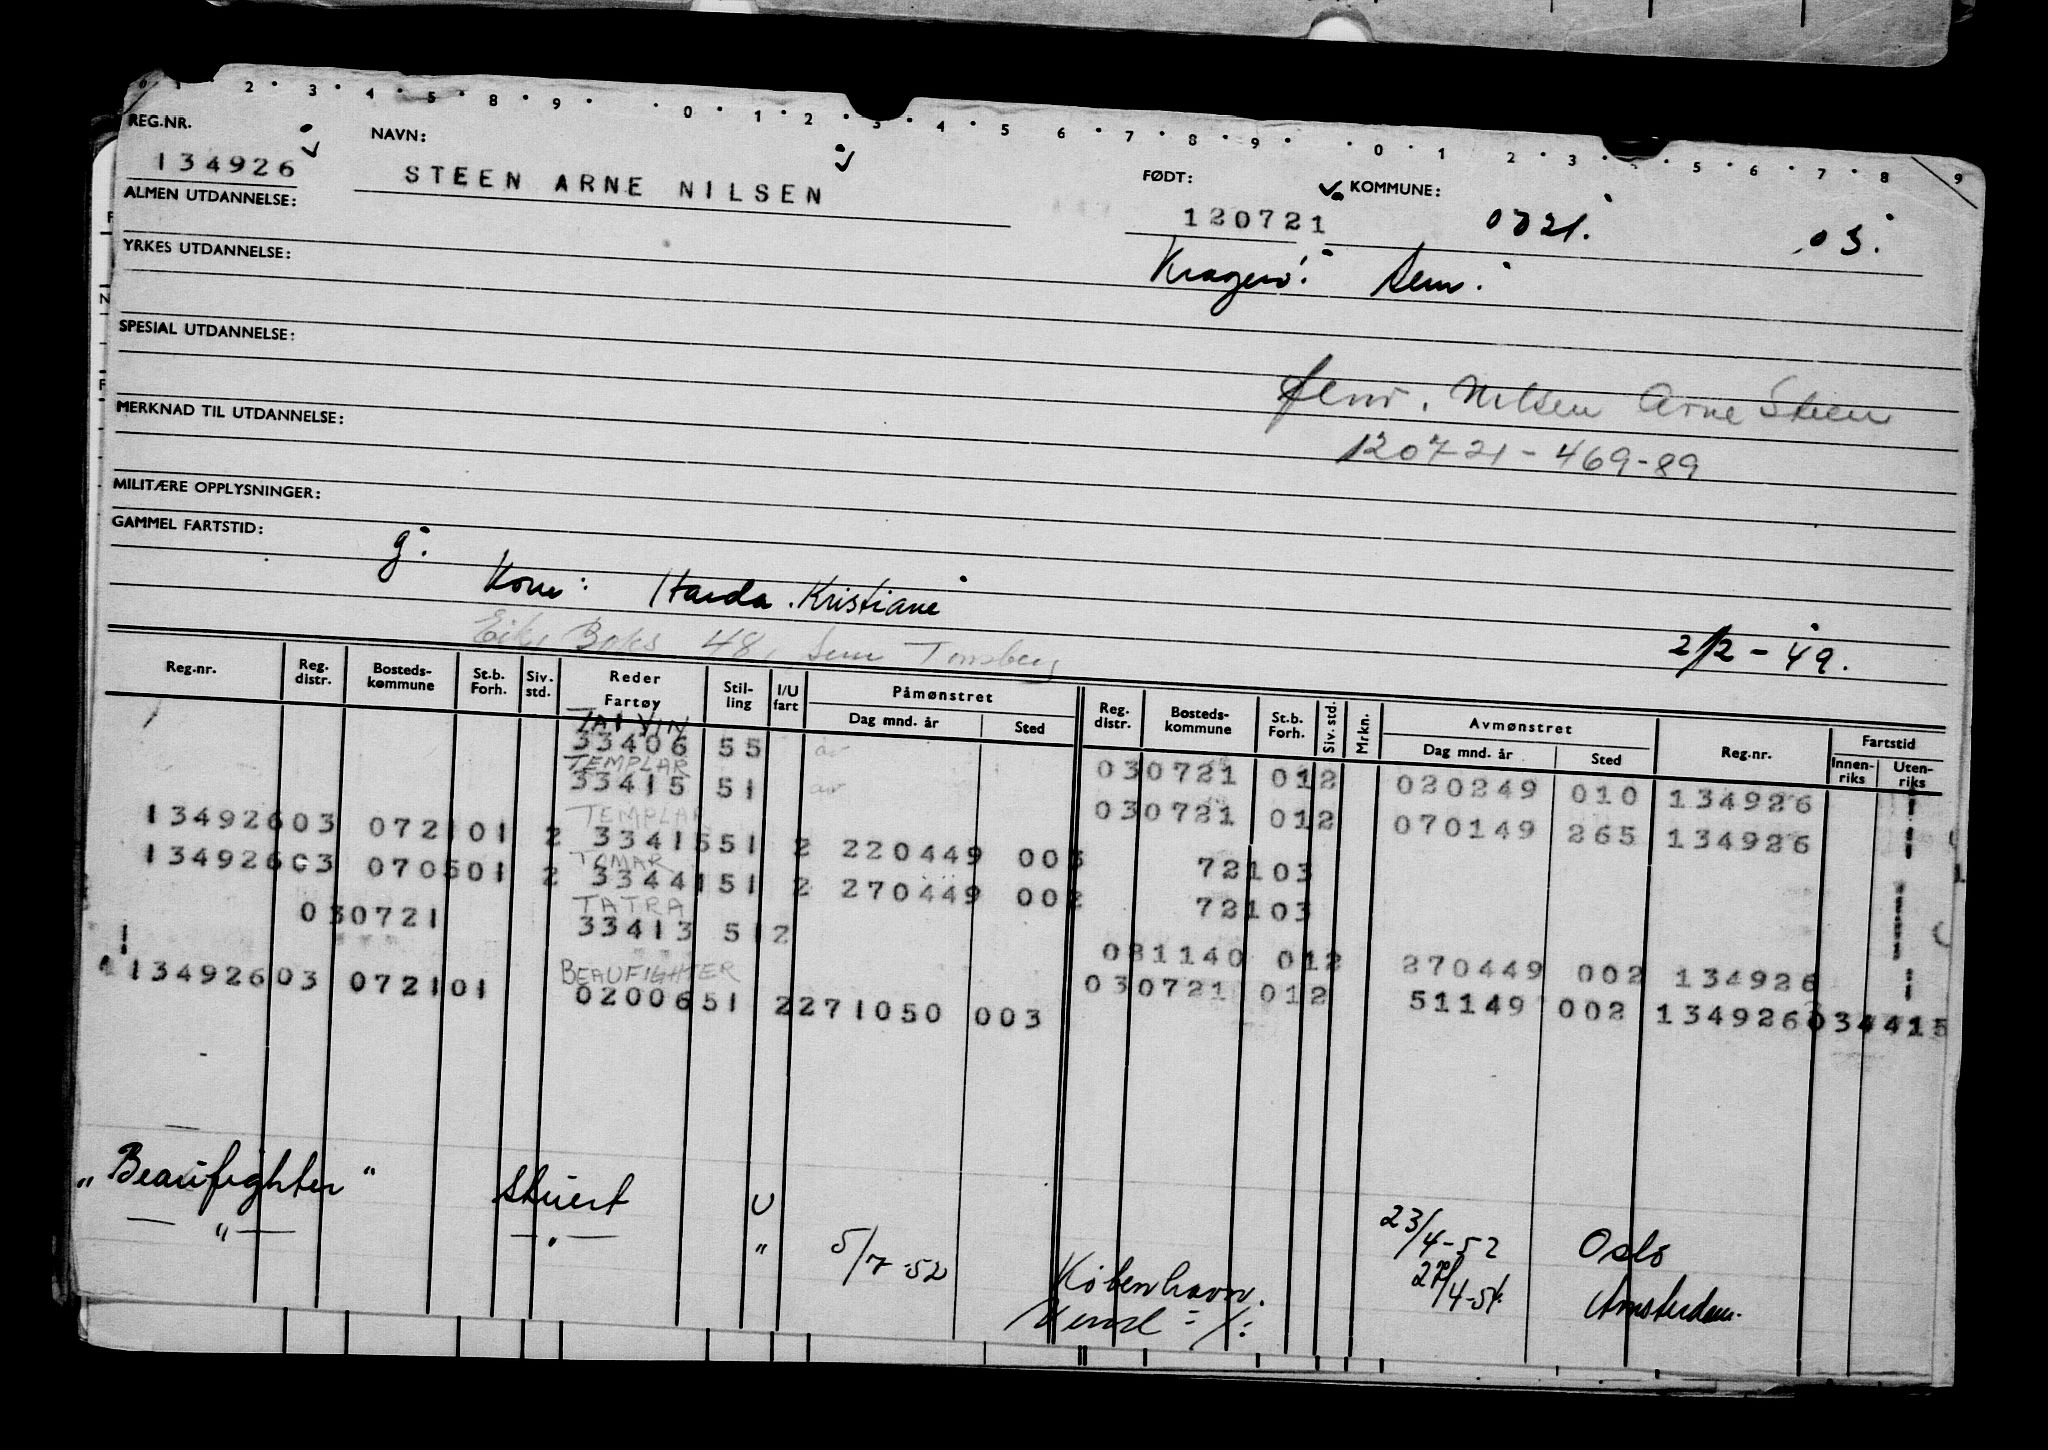 0 1 2 3 4 5 8 9 0 1 2 3 4 5 6 7 8 9 0 1 2 3 5 6 7 8 9
REG.NR. NAVN: FØDT: KOMMUNE:
134926 STEEN ARNE NILSEN 120721 0721. 03.
ALMEN UTDANNELSE:
Kragerø. Sem.
YRKES UTDANNELSE:
SPESIAL UTDANNELSE:
Nilsen Arne Steen
120721-469-89
MERKNAD TIL UTDANNELSE:
MILITÆRE OPPLYSNINGER:
GAMMEL FARTSTID:
g.
Kone: Kristiane
Eik, Boks 48, Sem Tønsberg
2/2-49.
Reg.nr. Reg. distr. Bosteds-kommune St.b. Forh. Siv. std. Reder Fartøy Stil-ling I/U fart Påmønstret Dag mnd. år Sted Reg. distr. Bosteds-kommune St.b. Forh. Siv. std. Mrkn. Avmønstret Dag mnd. år Sted Reg.nr. Fartstid Innen-riks Uten-riks
TAI YIN
33406 55 030721 012 020249 010 134926
TEMPLAR
33415 51 030721 012 070149 265 134926
TEMPLAR
134926 03 0721 01 2 33415 51 2 220449 003 72103
TAMAR
134926 03 0705 01 2 33441 51 2 270449 002 72103
TATRA
030721 33413 512 081140 012 270449 002 134926
BEAUFIGHTER
134926 03 0721 01 02006 51 2 271050 003 030721 012 51149 002 134926 034415
"Beaufighter" Stuert U 23/4-52 Oslo
— " — — " — " 5/7-52 København. 27/4-54 Amsterdam.
Vend ./: